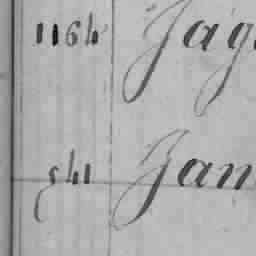 1164 Jag
541 Jan